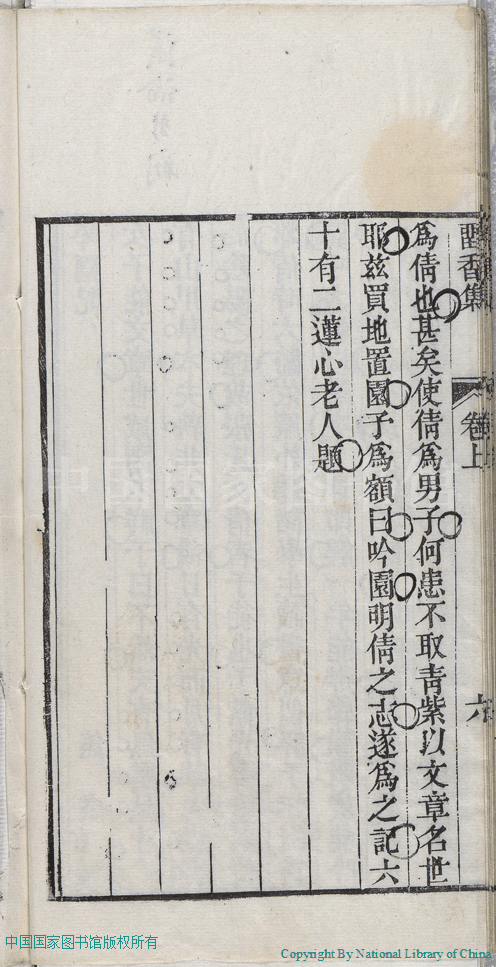 酉香集 卷上 六
為倩也甚矣使倩為男子何患不取青紫以文章名世
耶兹買地置園子為額曰吟園明倩之志遂為之記六
十有二蓮心老人題
中国国家图书馆版权所有
Copyright By National Library of China